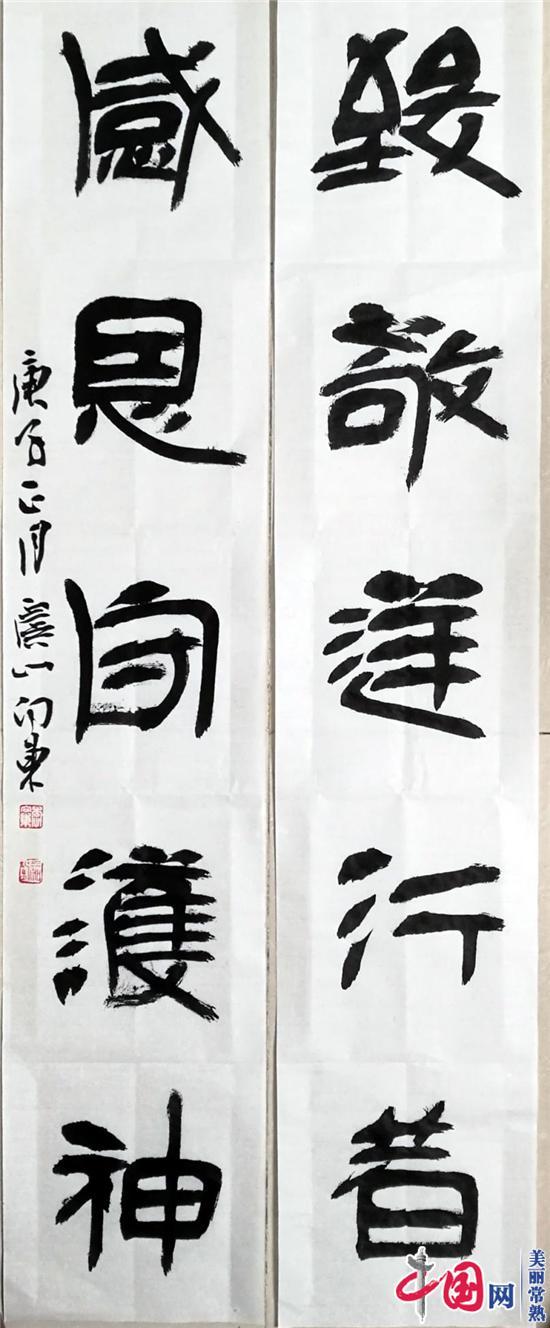 致敬逆行者
感恩守護神
庚子正月虞山
中国网
美丽常熟